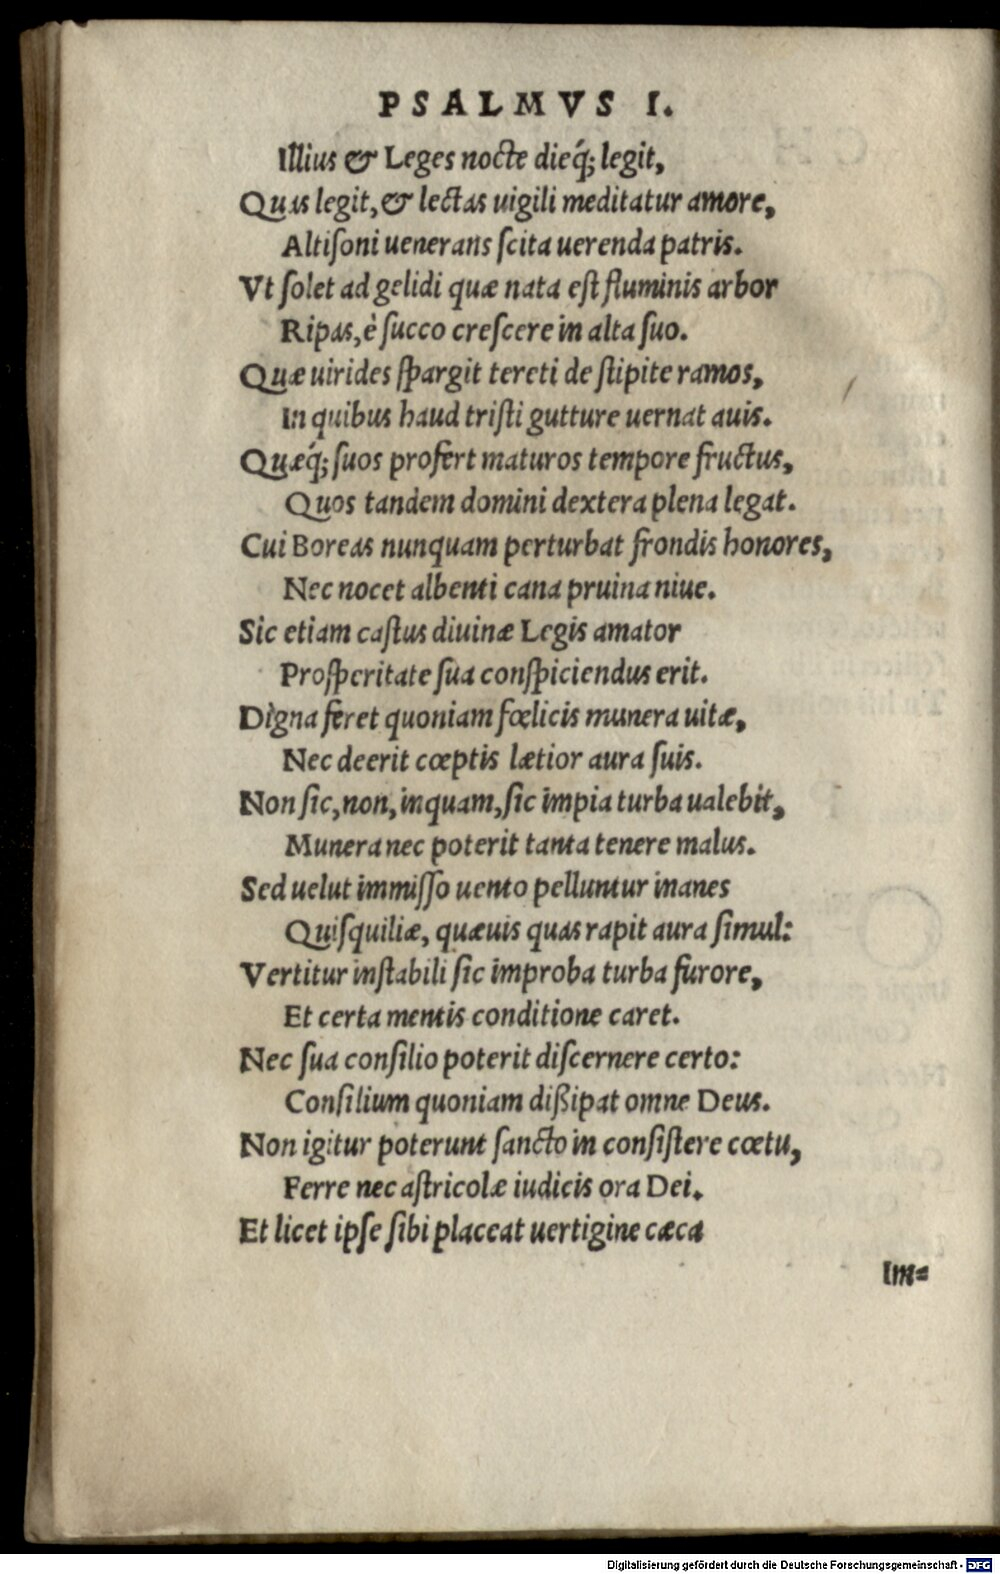 PSALMVS I.
Illius & Leges nocte dieq́; legit,
Quas legit, & lectas uigili meditatur amore,
Altiſoni uenerans ſcita uerenda patris.
Vt ſolet ad gelidi quæ nata eſt fluminis arbor
Ripas, è ſucco creſcere in alta ſuo.
Quæ uirides ſpargit tereti de ſtipite ramos,
In quibus haud triſti gutture uernat auis.
Quæq́; ſuos profert maturos tempore fructus,
Quos tandem domini dextera plena legat.
Cui Boreas nunquam perturbat frondis honores,
Nec nocet albenti cana pruina niue.
Sic etiam caſtus diuinæ Legis amator
Proſperitate ſua conſpiciendus erit.
Digna feret quoniam fœlicis munera uitæ,
Nec deerit cœptis lætior aura ſuis.
Non ſic, non, inquam, ſic impia turba ualebit,
Munera nec poterit tanta tenere malus.
Sed uelut immiſſo uento pelluntur inanes
Quiſquiliæ, quæuis quas rapit aura ſimul:
Vertitur inſtabili ſic improba turba furore,
Et certa mentis conditione caret.
Nec ſua conſilio poterit diſcernere certo:
Conſilium quoniam dißipat omne Deus.
Non igitur poterunt ſancto in conſiſtere cœtu,
Ferre nec aſtricolæ iudicis ora Dei.
Et licet ipſe ſibi placeat uertigine cæca
Im=
Digitalisierung gefördert durch die Deutsche Forschungsgemeinschaft - DFG